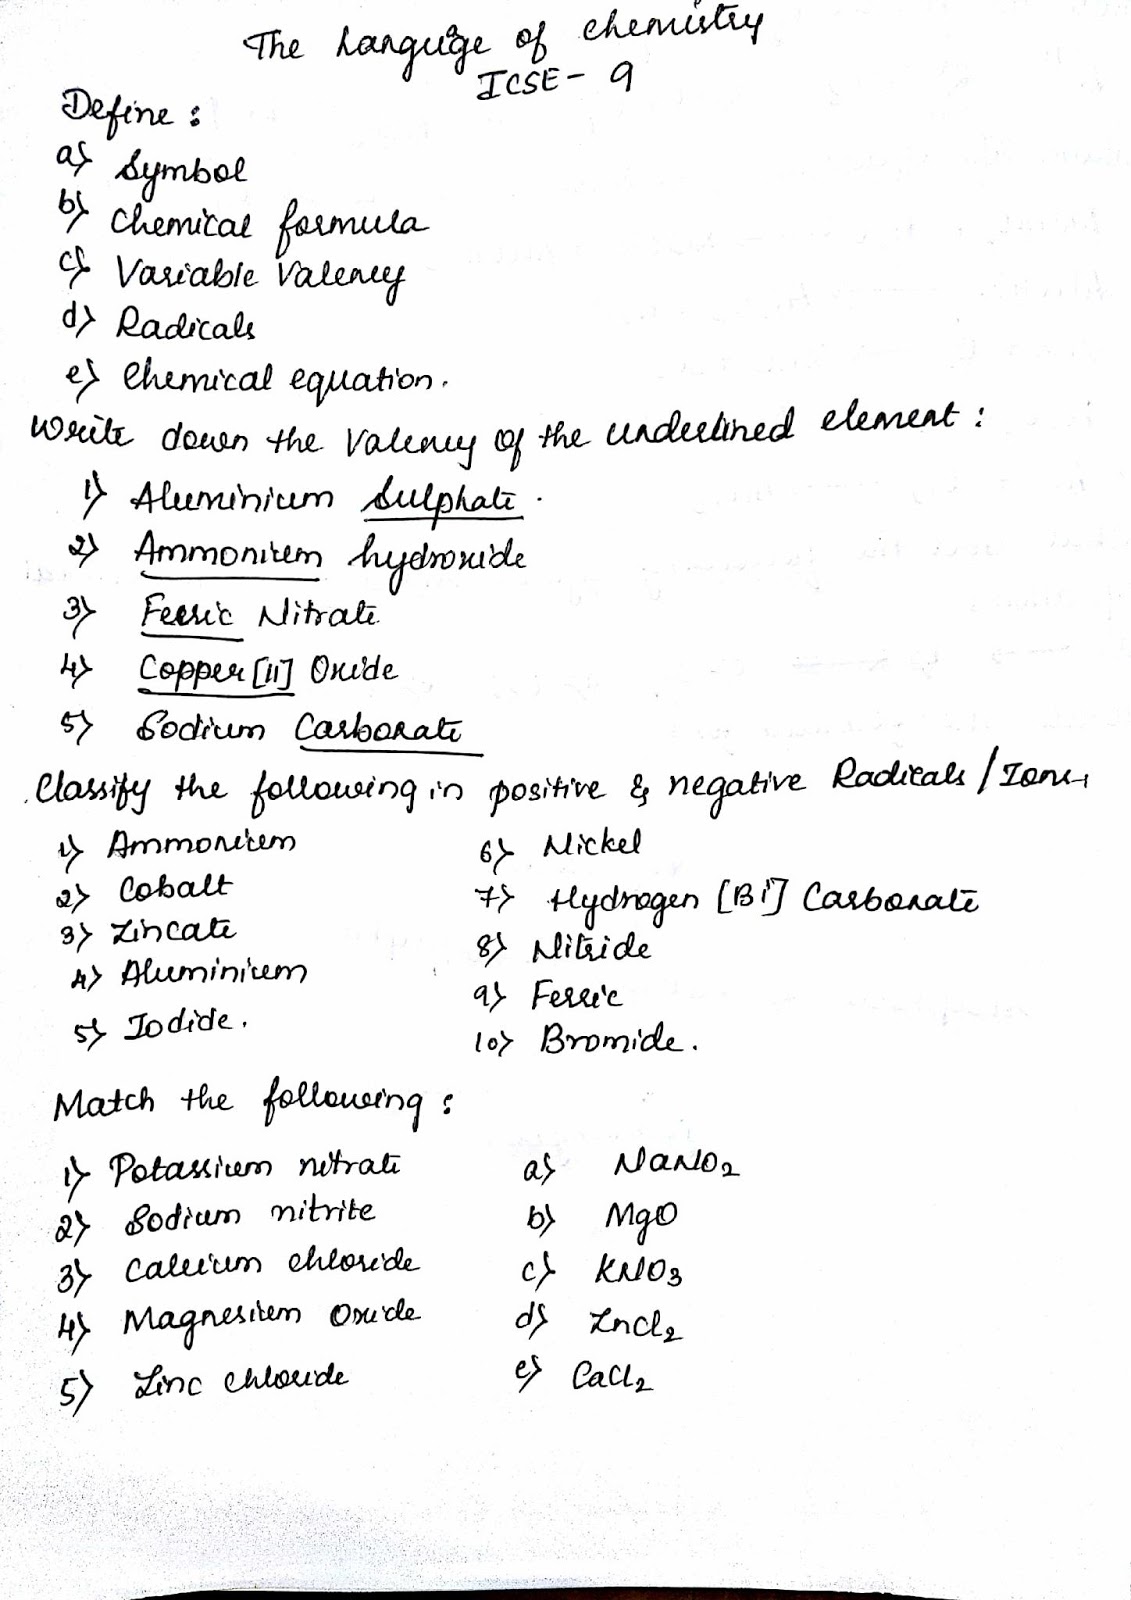 The Language of chemistry
ICSE - 9
Define :
a) Symbol
b) Chemical formula
c) Variable Valency
d) Radicals
e) Chemical equation.
Write down the Valency of the underlined element :
1) Aluminium Sulphate .
2) Ammonium hydroxide
3) Ferric Nitrate
4) Copper [II] Oxide
5) Sodium Carbonate
Classify the following in positive & negative Radicals / Ions
1) Ammonium
2) Cobalt
3) Zincate
4) Aluminium
5) Iodide .
6) Nickel
7) Hydrogen [Bi] Carbonate
8) Nitride
9) Ferric
10) Bromide .
Match the following :
1) Potassium nitrate a) NaNO2
2) Sodium nitrite b) MgO
3) Calcium chloride c) KNO3
4) Magnesium Oxide d) ZnCl2
5) Zinc chloride e) CaCl2